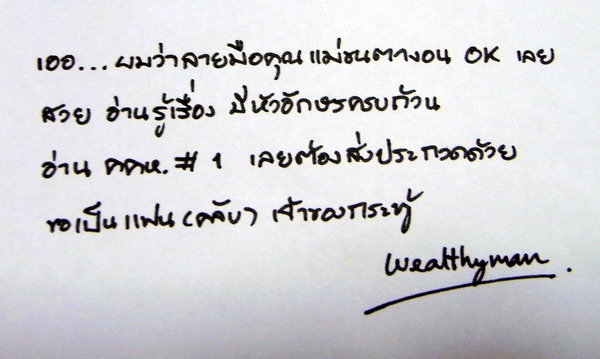 เออ... ผมว่าลายมือคุณแม่ขนตางอน OK เลย
สวย อ่านรู้เรื่อง มีหัวอักษรครบถ้วน
อ่าน คคห. # 1 เลยต้องส่งประกวดด้วย
ขอเป็นแฟน (คลับ) เจ้าของกระทู้
Wealthyman.